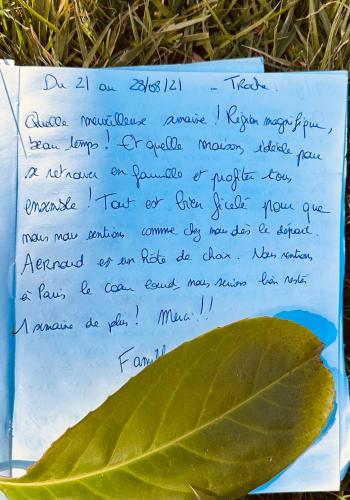 Du 21 au 28/08/21 - Troche.
Quelle merveilleuse semaine ! Région magnifique,
beau temps ! Et quelle maison, idéale pour
se retrouver en famille et profiter tous
ensemble ! Tout est bien ficelé pour que
nous nous sentions comme chez nous dès le départ.
Aernoud est un hôte de choix. Nous rentrons
à Paris le cœur lourd, nous serions bien restés
1 semaine de plus ! Merci !!